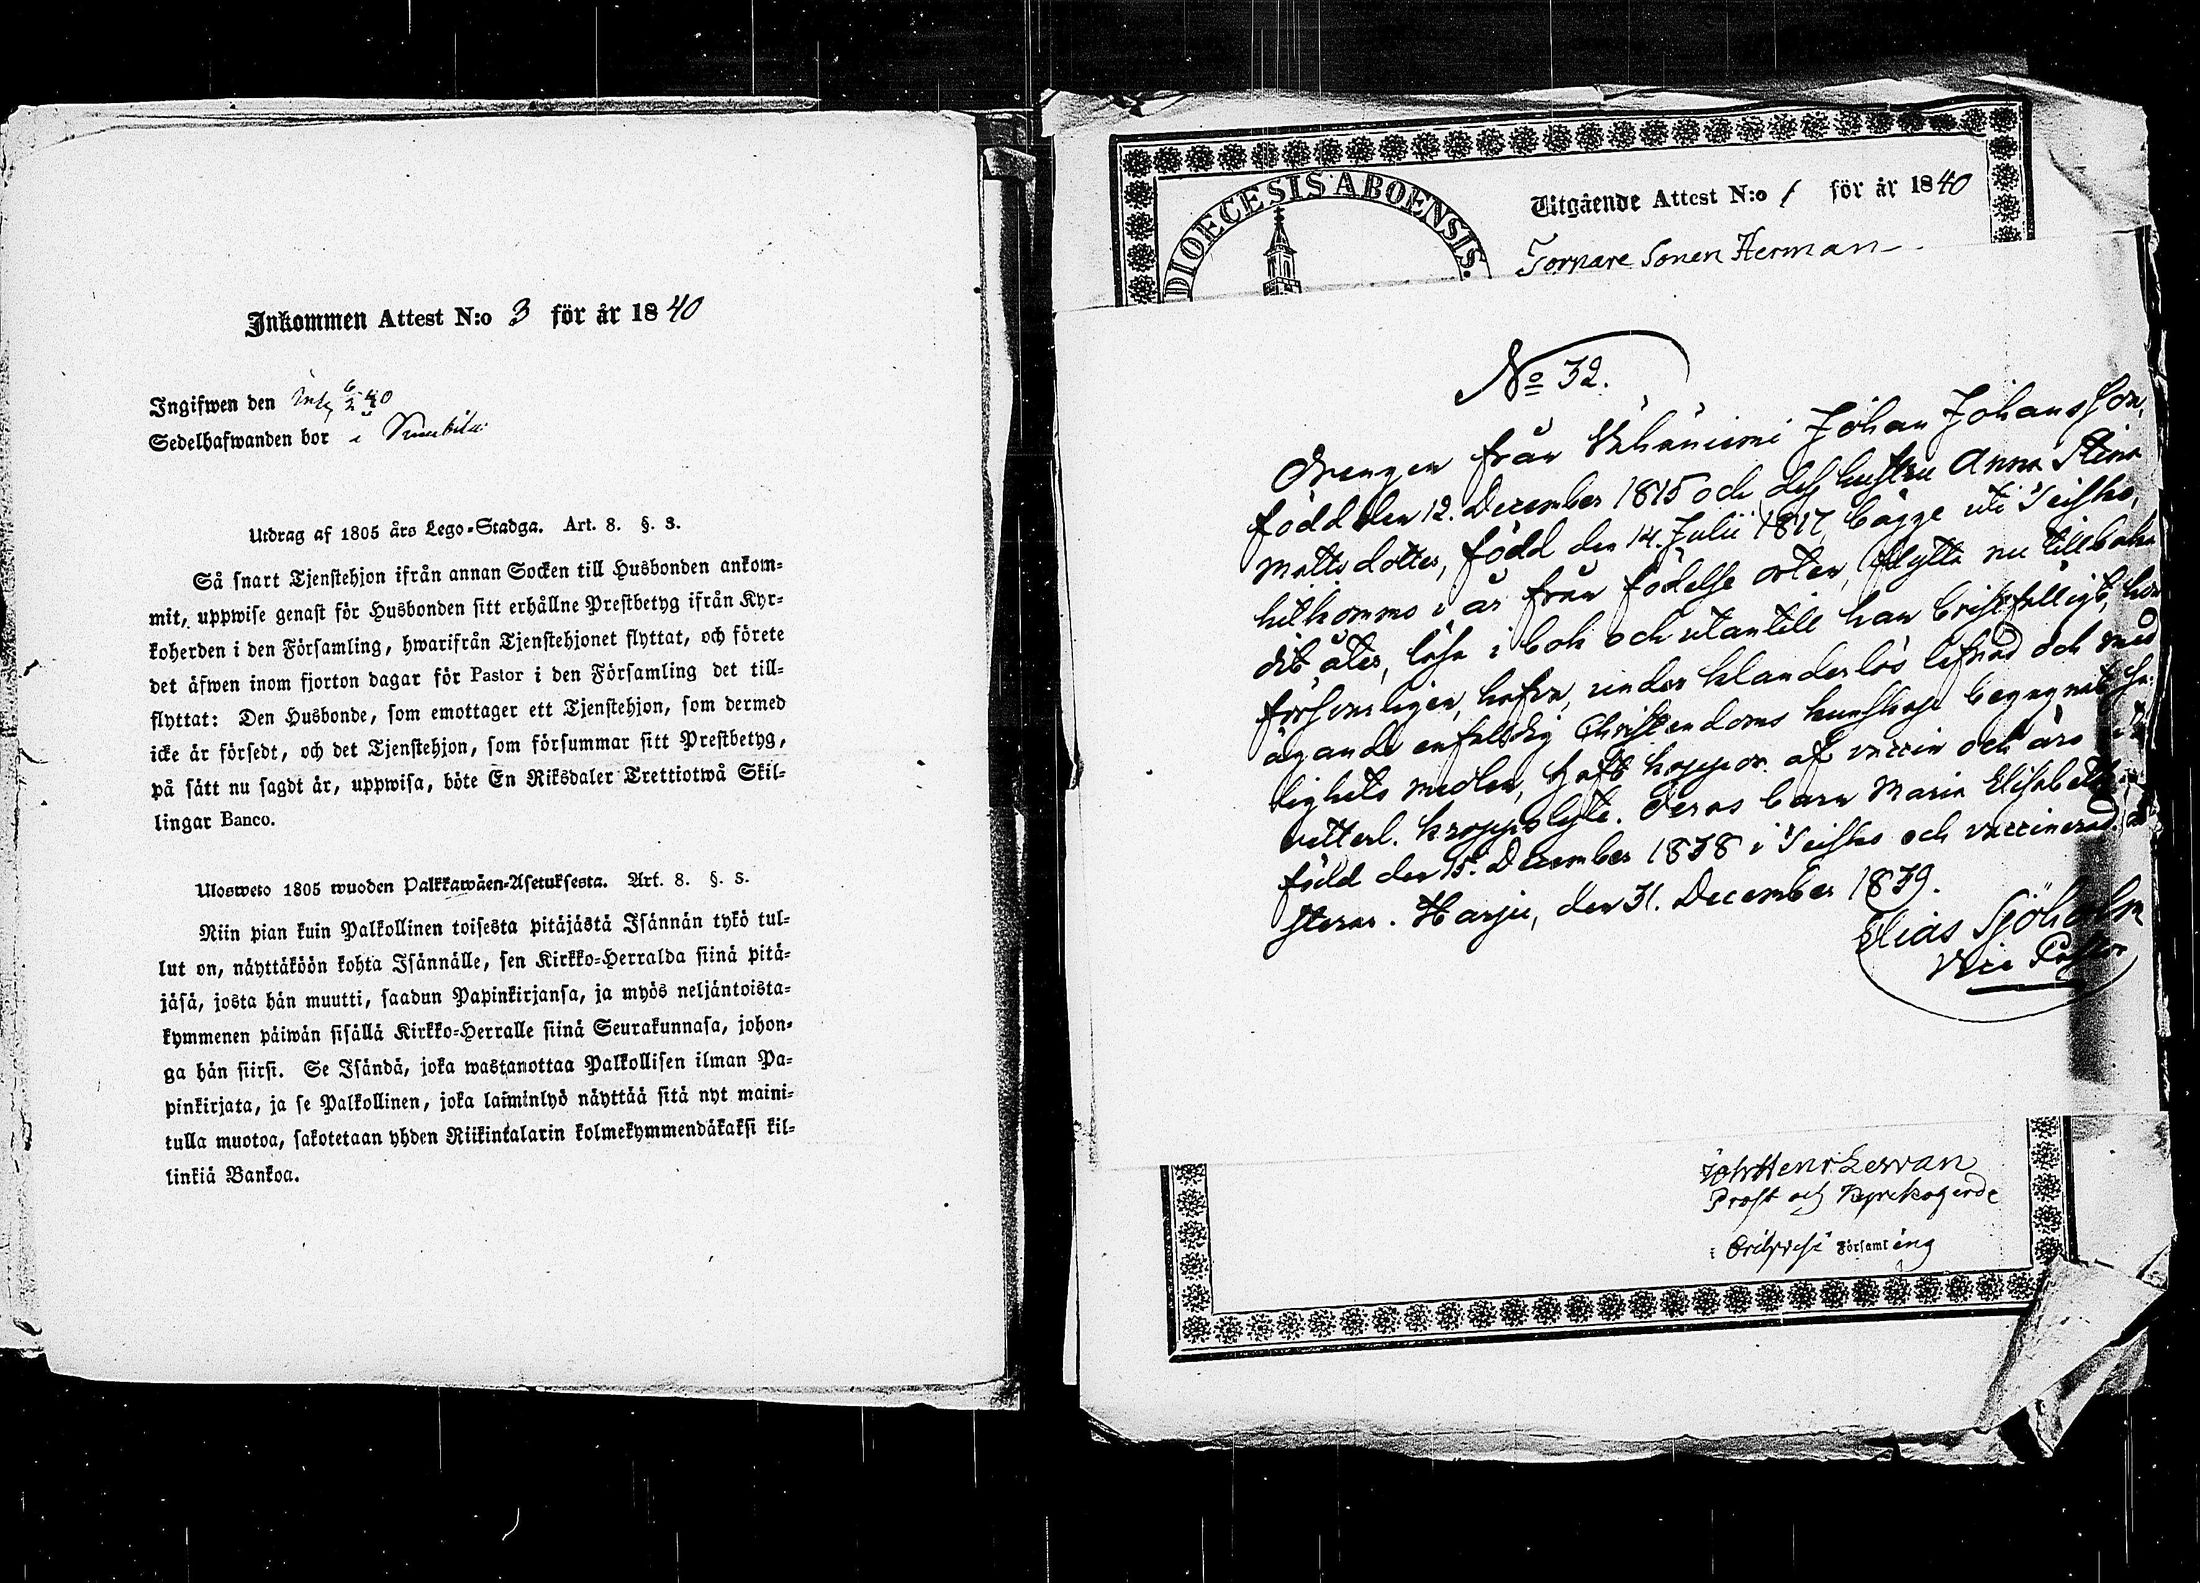 Inkommen Attest N:o 3 för år 1840
Ingifwen den 6/2 40
Sedelhafwanden bor i
Utdrag af 1805 års Lego-Stadga. Art. 8. §. 3.
Så snart Tjenstehjon ifrån annan Socken till Husbonden ankom-
mit, uppwise genast för Husbonden sitt erhållne Prestbetyg ifrån Kyr-
koherden i den Församling, hwarifrån Tjenstehjonet flyttat, och förete
det äfwen inom fjorton dagar för Pastor i den Församling det till-
flyttat: Den Husbonde, som emottager ett Tjenstehjon, som dermed
icke är försedt, och det Tjenstehjon, som försummar sitt Prestbetyg,
på sätt nu sagdt är, uppwisa, böte En Riksdaler Trettiotwå Skil-
lingar Banco.
Ulosweto 1805 wuoden Palkkawäen-Asetuksesta. Art. 8. §. 3.
Niin pian kuin Palkollinen toisesta pitäjästä Isännän tykö tul-
lut on, näyttäköön kohta Isännälle, sen Kirkko-Herralda siinä pitä-
jäsä, josta hän muutti, saadun Papinkirjansa, ja myös neljäntoista-
kymmenen päiwän sisällä Kirkko-Herralle siinä Seurakunnasa, johon-
ga hän siirsi. Se Isändä, joka wastanottaa Palkollisen ilman Pa-
pinkirjata, ja se Palkollinen, joka laiminlyö näyttää sitä nyt maini-
tulla muotoa, sakotetaan yhden Riikintalarin kolmekymmendäkaksi kil-
linkiä Bankoa.
DIOECESIS ABOENSIS.
Utgående Attest N:o 1 för år 1840
Tornare Sonen Herman
No 32.
Drengen från Vähäniemi Johan Johansson,
född den 12. December 1815 och dess hustru Anna Stina
Matts dotter, född den 14. Julii 1817, bägge uti Teisko,
hitkomne i år från födelse orten, flytta nu tillbaka
dit åter, läsa i bok och utantill han bristfälligt, hon
försvarligen, hafva, under klanderlös lefnad och med
ägande enfaldig Christendoms kunskap begagnat sa-
lighets medlen, haft koppor af vaccin och äro
vitterl. kroppslyte. Deras barn Maria Elisabeth
född den 15. December 1838 i Teisko och vaccinerad.
steras. Harju, den 31. December 1839.
Elias Sjöholm
Vice Pastor
Joh Henr Lervan
Prost och Kyrkoherde
i Församling